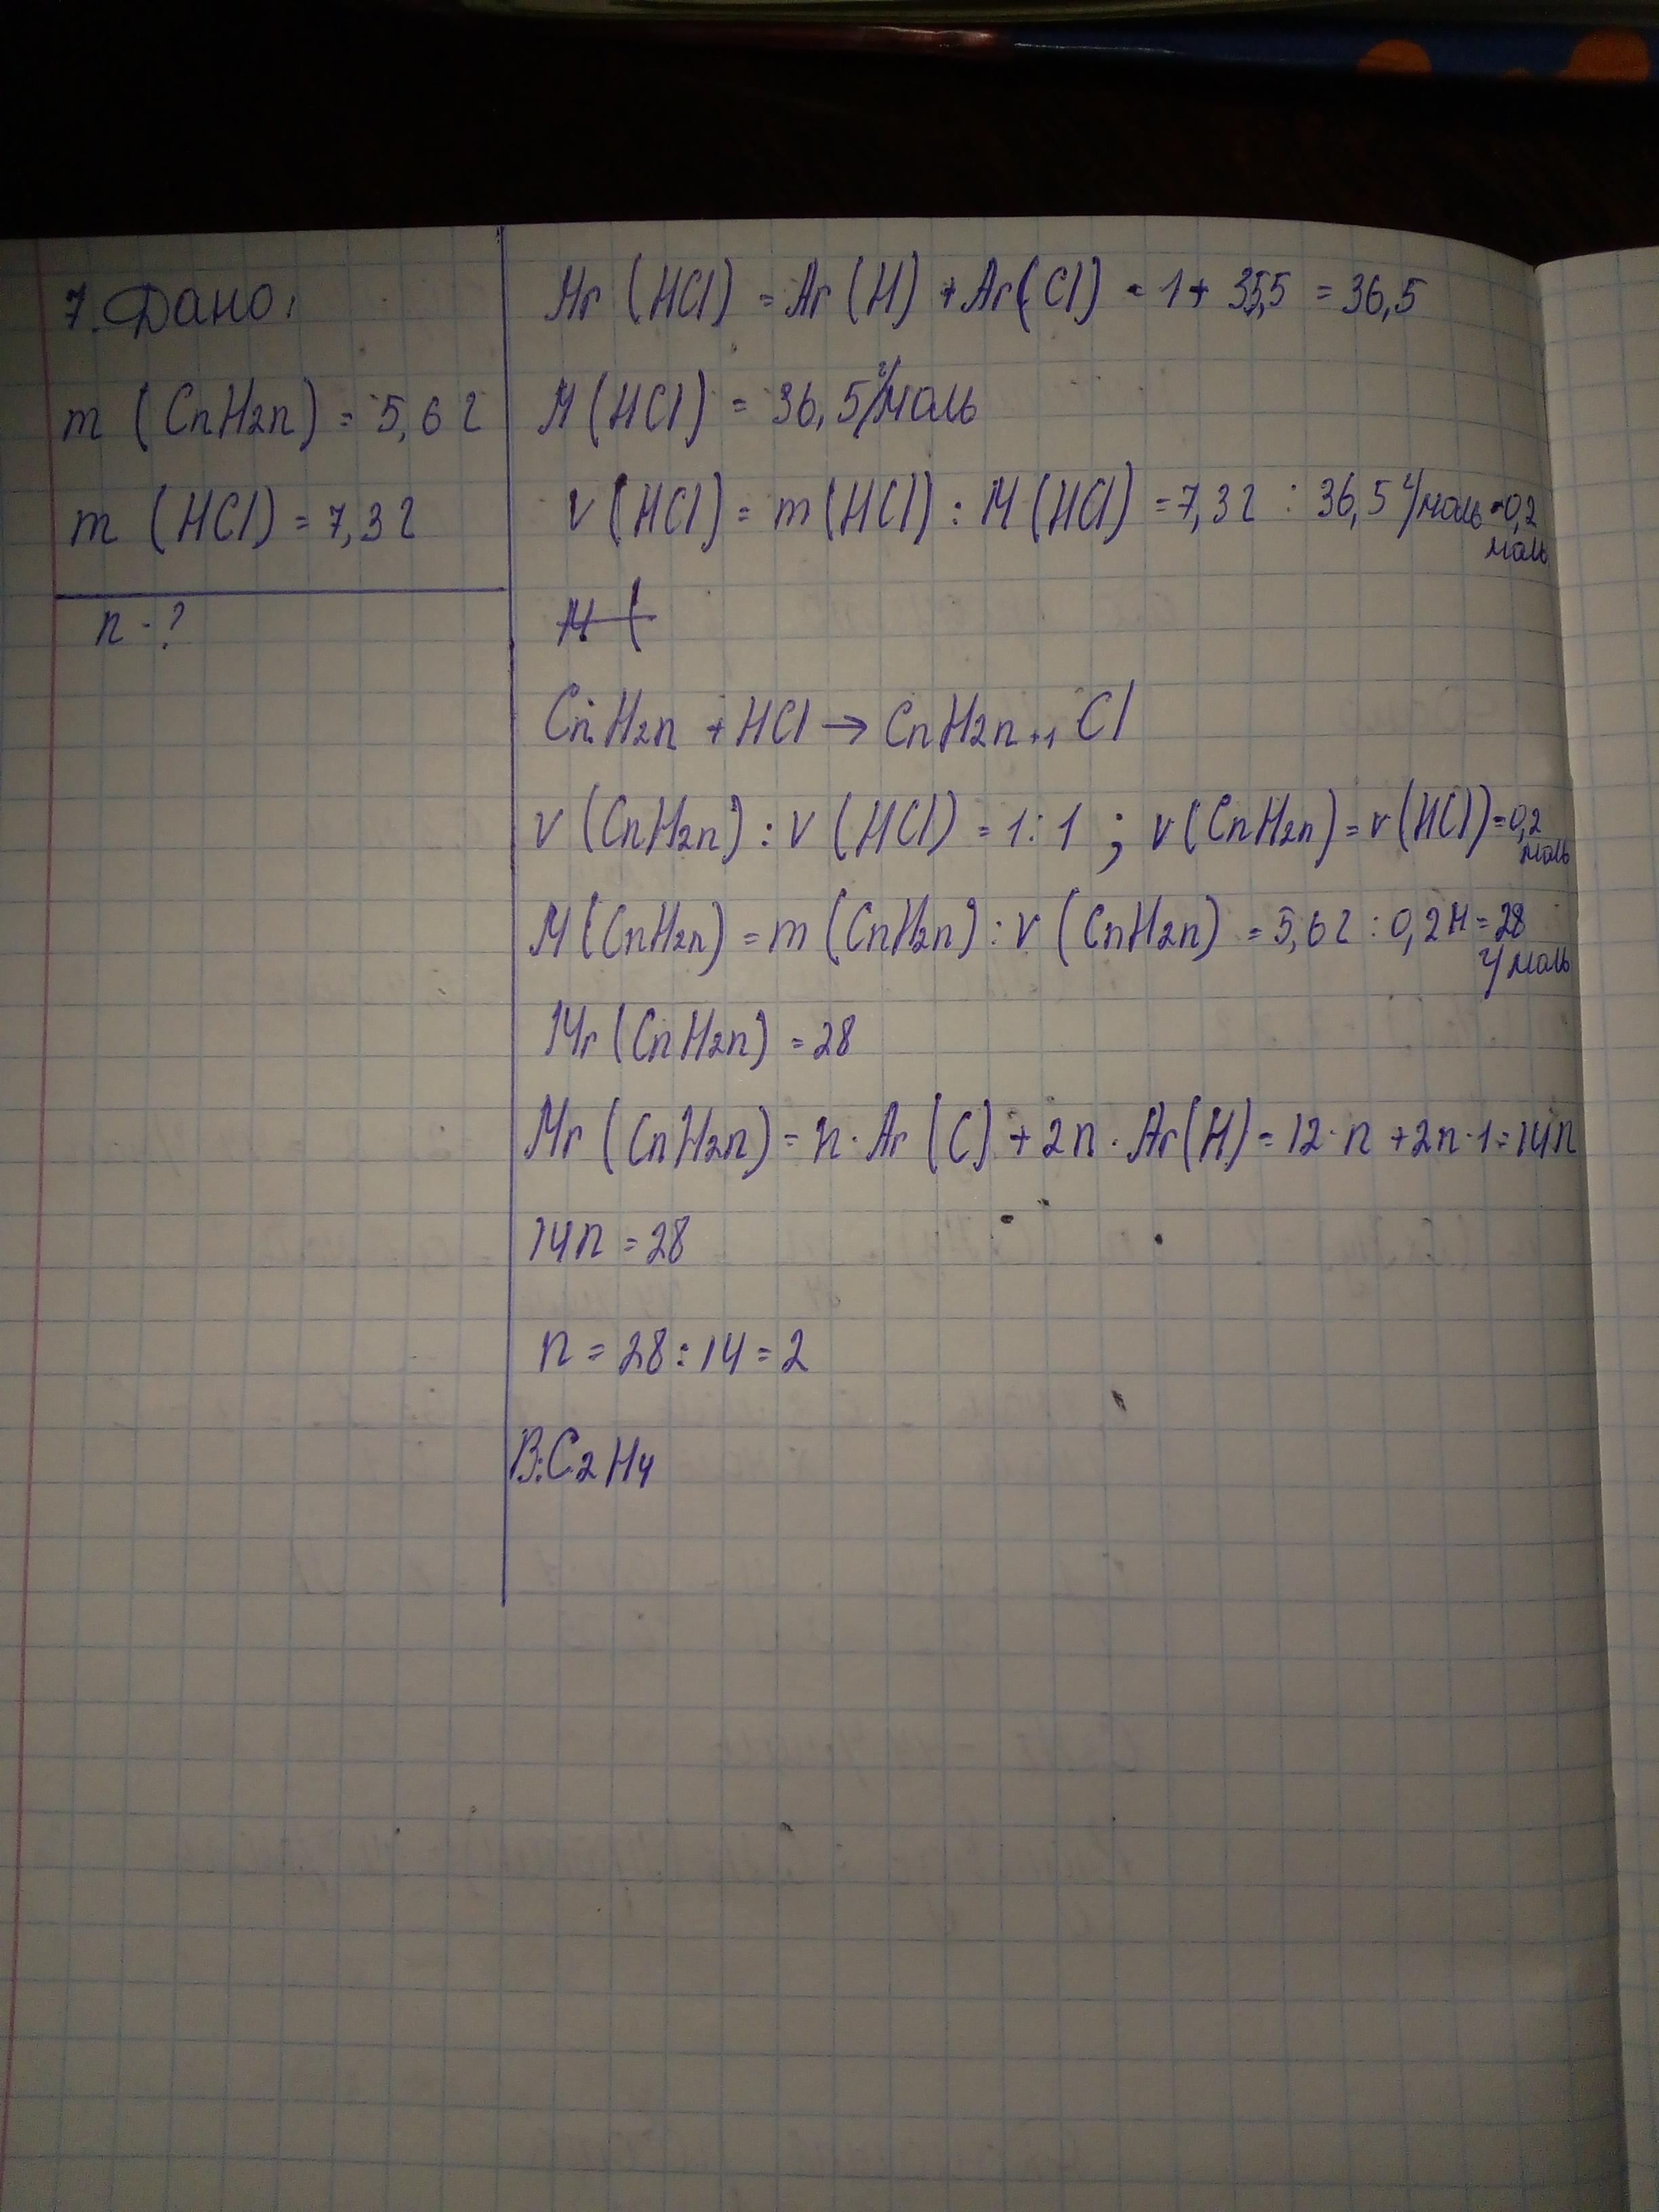 7. Дано:
m (CnH2n) = 5,6 г
m (HCl) = 7,3 г
n - ?
Mr (HCl) = Ar (H) + Ar (Cl) = 1 + 35,5 = 36,5
M (HCl) = 36,5 г/моль
ν (HCl) = m (HCl) : M (HCl) = 7,3 г : 36,5 г/моль = 0,2 моль
CnH2n + HCl → CnH2n+1 Cl
ν (CnH2n) : ν (HCl) = 1 : 1 ; ν (CnH2n) = ν (HCl) = 0,2 моль
M (CnH2n) = m (CnH2n) : ν (CnH2n) = 5,6 г : 0,2 М = 28 г/моль
Mr (CnH2n) = 28
Mr (CnH2n) = n · Ar (C) + 2n · Ar (H) = 12 · n + 2n · 1 = 14n
14n = 28
n = 28 : 14 = 2
В: C2H4